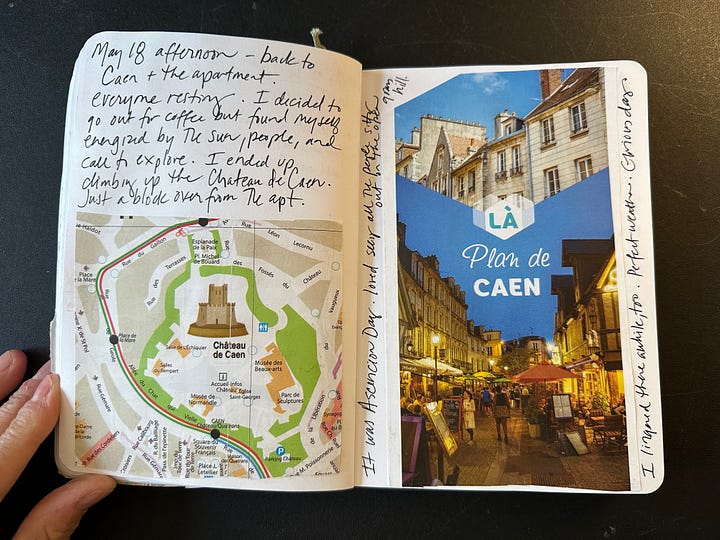 May 18 afternoon – back to
Caen + the apartment.
everyone resting. I decided to
go out for coffee but found myself
energized by the sun, people, and
call to explore. I ended up
climbing up the Chateau de Caen.
Just a block over from the apt.
Rue du Gaillon
Esplanade
de la Paix
Pl. Michel
de Bouärd
Rue Léon
Lecornu
Rue des Terrasses
Rue des Fossés
du Château
Place
de la Mare
Château
de Caen
Salle de l'Échiquier
Musée des
Beaux-arts
Salles
du Rempart
Accueil-Infos
Château
Église
Saint-Georges
Musée de
Normandie
Parc de
Sculptures
CAEN
Square du
Souvenir
Français
Place J.
Letellier
Parking Château
P
It was Ascencion Day. I loved seeing all the people sitting out on the
grass
hill.
LÀ
Plan de
CAEN
I lingered there awhile, too. Perfect weather. Glorious day.